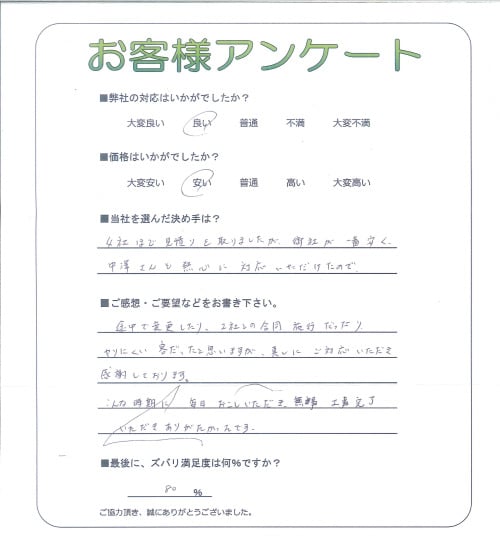 お客様アンケート
■弊社の対応はいかがでしたか？
大変良い 良い 普通 不満 大変不満
■価格はいかがでしたか？
大変安い 安い 普通 高い 大変高い
■当社を選んだ決め手は？
4社ほど見積りを取りましたが、御社が一番安く、
中澤さんも熱心に対応いただけたので。
■ご感想・ご要望などをお書き下さい。
途中で変更したり、2社との合同施行だったり
やりにくい客だったと思いますが、真しにご対応いただき
感謝しております。
時期に 毎日おこしいただき、無事 工事完了
いただきありがたかったです。
■最後に、ズバリ満足度は何％ですか？
80 ％
ご協力頂き、誠にありがとうございました。